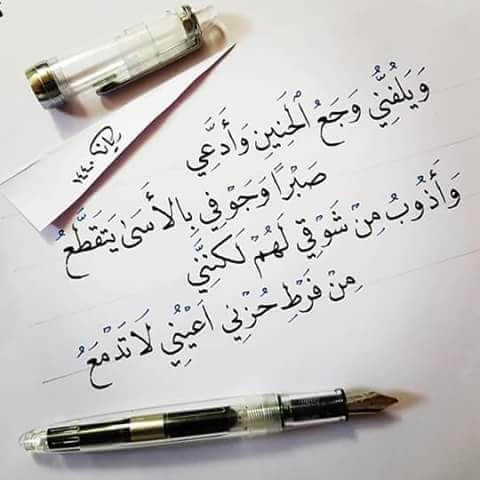 وَيَلُفُّنِي وَجَعُ الْحَنِينِ وَأَدَّعِي
صَبْرًا وَجَوْفِي بِالأَسَىٰ يَتَقَطَّعُ
وَأَذُوبُ مِنْ شَوْقِي لَهُمْ لَكِنَّنِي
مِنْ فَرْطِ حُزْنِي أَعْيُنِي لَا تَدْمَعُ
١٤٤٠